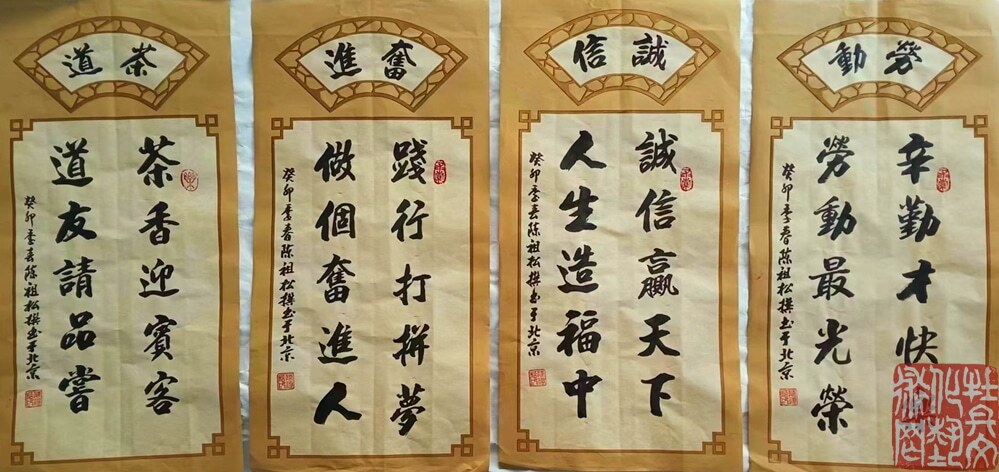 勞動
辛勤才快
勞動最光榮
癸卯季春陳祖松撰书于北京
誠信
誠信贏天下
人生造福中
癸卯季春陳祖松撰书于北京
奮進
踐行打拼夢
做個奮進人
癸卯季春陳祖松撰书于北京
茶道
茶香迎賓客
道友請品嘗
癸卯季春陳祖松撰书于北京